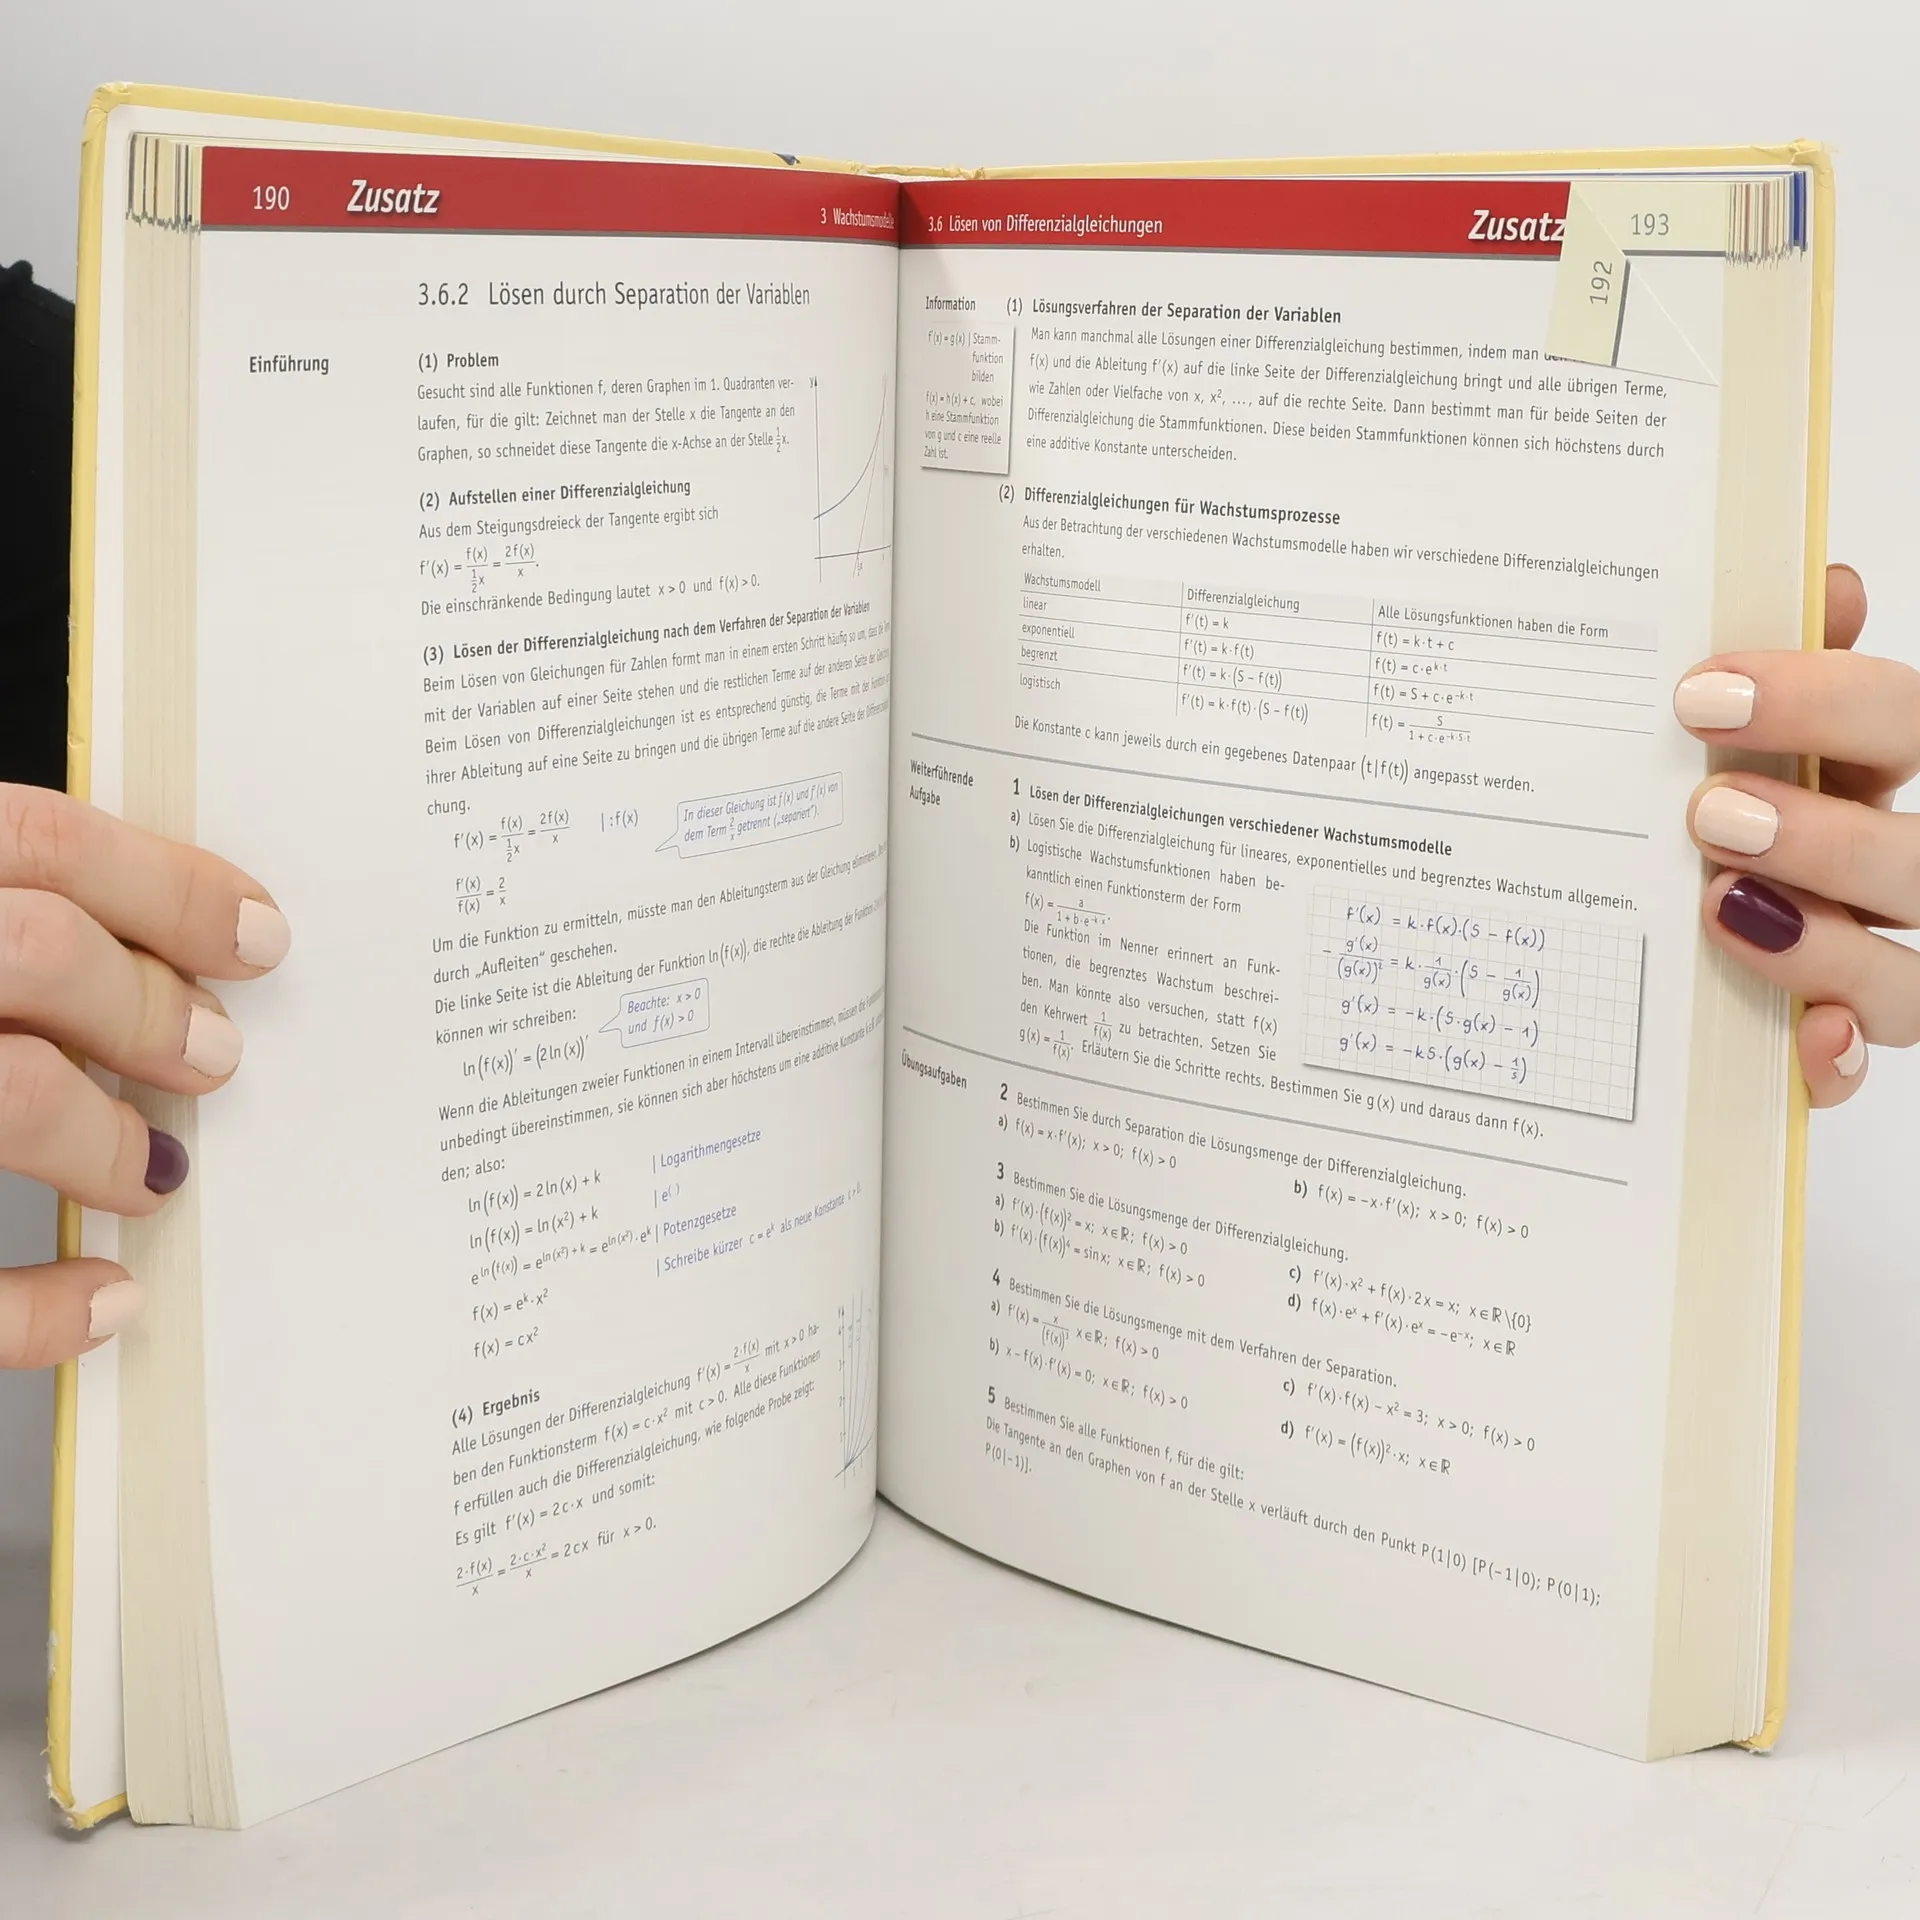 190 Zusatz
3 Wachstumsmodelle
3.6.2 Lösen durch Separation der Variablen
Einführung
(1) Problem
Gesucht sind alle Funktionen f, deren Graphen im 1. Quadranten ver-
laufen, für die gilt: Zeichnet man der Stelle x die Tangente an den
Graphen, so schneidet diese Tangente die x-Achse an der Stelle ½x.
y
(2) Aufstellen einer Differenzialgleichung
Aus dem Steigungsdreieck der Tangente ergibt sich
f'(x) = f(x)/(½x) = 2f(x)/x.
Die einschränkende Bedingung lautet x > 0 und f(x) > 0.
(3) Lösen der Differenzialgleichung nach dem Verfahren der Separation der Variablen
Beim Lösen von Gleichungen für Zahlen formt man in einem ersten Schritt häufig so um, dass die
mit der Variablen auf einer Seite stehen und die restlichen Terme auf der anderen Seite der
Beim Lösen von Differenzialgleichungen ist es entsprechend günstig, die Terme mit der Funktion
ihrer Ableitung auf eine Seite zu bringen und die übrigen Terme auf die andere Seite der
chung.
f'(x) = f(x)/(½x) = 2f(x)/x | :f(x)
In dieser Gleichung ist f(x) und f'(x) von
dem Term 2/x getrennt („separiert“).
f'(x)/f(x) = 2/x
Um die Funktion zu ermitteln, müsste man den Ableitungsterm aus der Gleichung eliminieren.
durch „Aufleiten“ geschehen.
Die linke Seite ist die Ableitung der Funktion ln(f(x)), die rechte die Ableitung der Funktion
können wir schreiben:
Beachte: x > 0
und f(x) > 0
ln(f(x))' = (2 ln(x))'
Wenn die Ableitungen zweier Funktionen in einem Intervall übereinstimmen, müssen die
unbedingt übereinstimmen, sie können sich aber höchstens um eine additive Konstante k
den; also:
ln(f(x)) = 2 ln(x) + k | Logarithmengesetze
ln(f(x)) = ln(x²) + k | e( )
e^(ln(f(x))) = e^(ln(x²) + k) = e^(ln(x²)) · e^k | Potenzgesetze
f(x) = e^k · x² | Schreibe kürzer c = e^k als neue Konstante c > 0.
f(x) = cx²
(4) Ergebnis
Alle Lösungen der Differenzialgleichung f'(x) = 2·f(x)/x mit x > 0 ha-
ben den Funktionsterm f(x) = c·x² mit c > 0. Alle diese Funktionen
f erfüllen auch die Differenzialgleichung, wie folgende Probe zeigt:
Es gilt f'(x) = 2c·x und somit:
2·f(x)/x = 2·c·x²/x = 2cx für x > 0.
3.6 Lösen von Differenzialgleichungen
Zusatz 193
192
Information
f'(x) = g(x) | Stamm-
funktion
bilden
f(x) = h(x) + c, wobei
h eine Stammfunktion
von g und c eine reelle
Zahl ist.
(1) Lösungsverfahren der Separation der Variablen
Man kann manchmal alle Lösungen einer Differenzialgleichung bestimmen, indem man
f(x) und die Ableitung f'(x) auf die linke Seite der Differenzialgleichung bringt und alle übrigen Terme,
wie Zahlen oder Vielfache von x, x², ..., auf die rechte Seite. Dann bestimmt man für beide Seiten der
Differenzialgleichung die Stammfunktionen. Diese beiden Stammfunktionen können sich höchstens durch
eine additive Konstante unterscheiden.
(2) Differenzialgleichungen für Wachstumsprozesse
Aus der Betrachtung der verschiedenen Wachstumsmodelle haben wir verschiedene Differenzialgleichungen
erhalten.
Wachstumsmodell Differenzialgleichung Alle Lösungsfunktionen haben die Form
linear f'(t) = k f(t) = k·t + c
exponentiell f'(t) = k·f(t) f(t) = c·e^(k·t)
begrenzt f'(t) = k·(S − f(t)) f(t) = S + c·e^(−k·t)
logistisch f'(t) = k·f(t)·(S − f(t)) f(t) = S/(1 + c·e^(−k·S·t))
Die Konstante c kann jeweils durch ein gegebenes Datenpaar (t|f(t)) angepasst werden.
Weiterführende
Aufgabe
1 Lösen der Differenzialgleichungen verschiedener Wachstumsmodelle
a) Lösen Sie die Differenzialgleichung für lineares, exponentielles und begrenztes Wachstum allgemein.
b) Logistische Wachstumsfunktionen haben be-
kanntlich einen Funktionsterm der Form
f(x) = a/(1 + b·e^(−k·x)).
Die Funktion im Nenner erinnert an Funk-
tionen, die begrenztes Wachstum beschrei-
ben. Man könnte also versuchen, statt f(x)
den Kehrwert 1/f(x) zu betrachten. Setzen Sie
g(x) = 1/f(x). Erläutern Sie die Schritte rechts. Bestimmen Sie g(x) und daraus dann f(x).
f'(x) = k·f(x)·(S − f(x))
− g'(x)/(g(x))² = k·1/g(x)·(S − 1/g(x))
g'(x) = −k·(S·g(x) − 1)
g'(x) = −kS·(g(x) − 1/S)
Übungsaufgaben
2 Bestimmen Sie durch Separation die Lösungsmenge der Differenzialgleichung.
a) f(x) = x·f'(x); x > 0; f(x) > 0
b) f(x) = −x·f'(x); x > 0; f(x) > 0
3 Bestimmen Sie die Lösungsmenge der Differenzialgleichung.
a) f'(x)·(f(x))² = x; x∈ℝ; f(x) > 0
b) f'(x)·(f(x))⁴ = sin x; x∈ℝ; f(x) > 0
c) f'(x)·x² + f(x)·2x = x; x∈ℝ\{0}
d) f(x)·e^x + f'(x)·e^x = −e^(−x); x∈ℝ
4 Bestimmen Sie die Lösungsmenge mit dem Verfahren der Separation.
a) f'(x) = x/(f(x))³ x∈ℝ; f(x) > 0
b) x − f(x)·f'(x) = 0; x∈ℝ; f(x) > 0
c) f'(x)·f(x) − x² = 3; x > 0; f(x) > 0
d) f'(x) = (f(x))²·x; x∈ℝ
5 Bestimmen Sie alle Funktionen f, für die gilt:
Die Tangente an den Graphen von f an der Stelle x verläuft durch den Punkt P(1|0) [P(−1|0); P(0|1);
P(0|−1)].